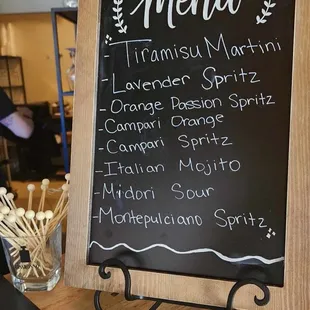 Menu
- Tiramisu Martini
- Lavender Spritz
- Orange Passion Spritz
- Campari Orange
- Campari Spritz
- Italian Mojito
- Midori Sour
- Montepulciano Spritz